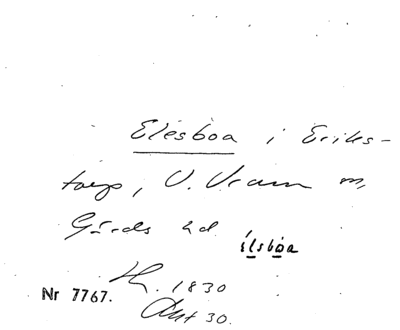 Elesboa i Eriks-
torp, V. Vram m,
Gärds hd.
elsboa
Nr 7767.
1830
Akt 30.